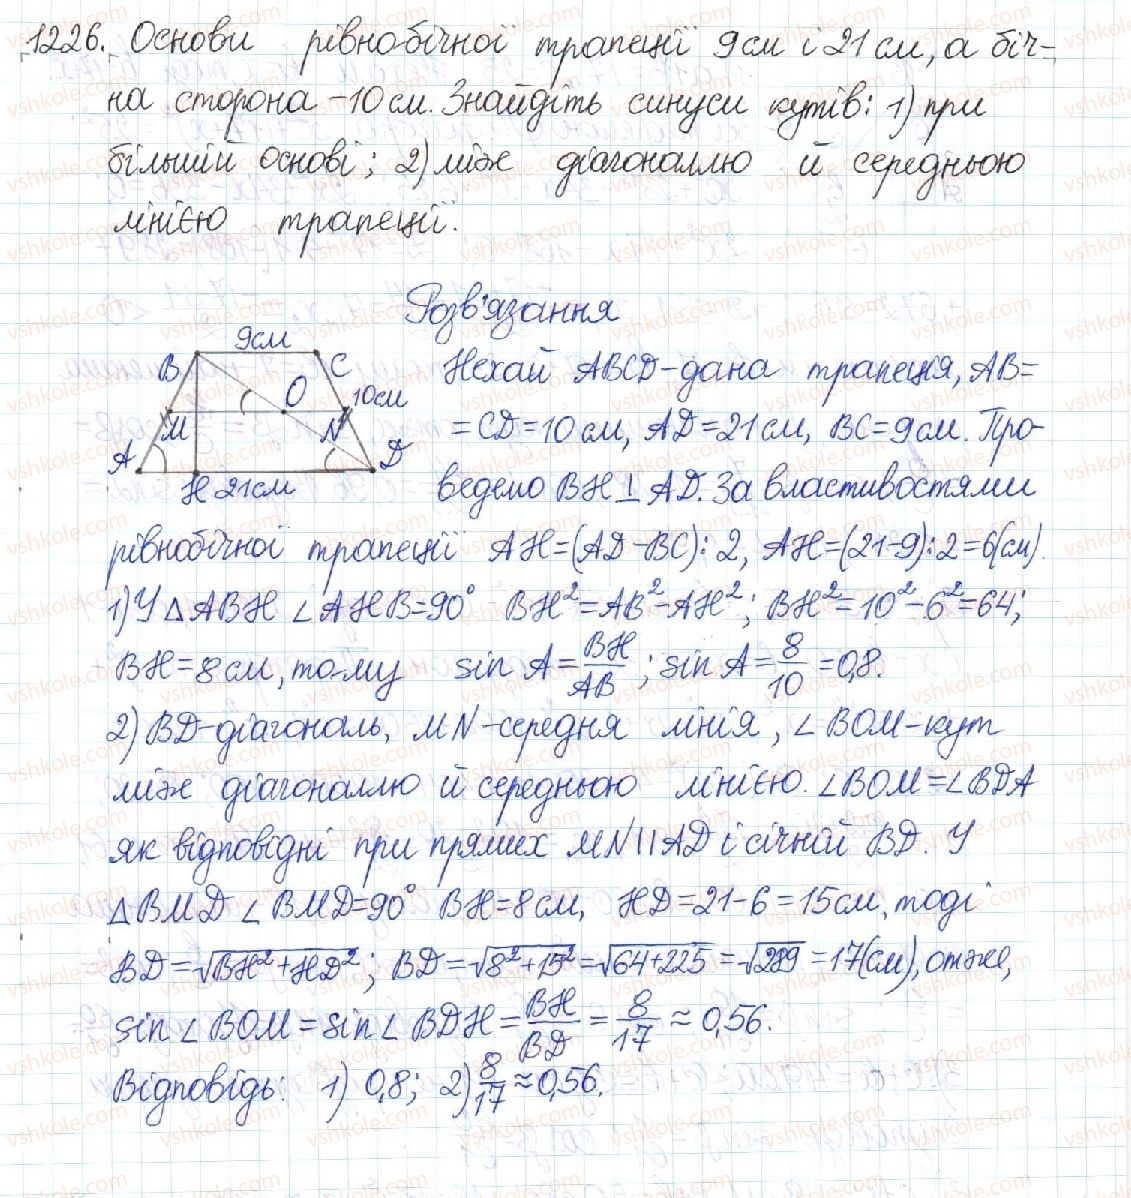 1226. Основи рівнобічної трапеції 9 см і 21 см, а біч-
на сторона - 10 см. Знайдіть синуси кутів: 1) при
більшій основі; 2) між діагоналлю й середньою
лінією трапеції.
Розв'язання
9см
B C
O 10см
M N
A D
H 21см
Нехай ABCD - дана трапеція, AB=
= CD = 10 см, AD = 21 см, BC = 9 см. Про-
ведемо BH ⊥ AD. За властивостями
рівнобічної трапеції AH = (AD - BC) : 2, AH = (21-9) : 2 = 6(см).
1) У △ABH ∠AHB = 90° BH² = AB² - AH²; BH² = 10² - 6² = 64;
BH = 8 см, тому sin A = BH/AB; sin A = 8/10 = 0,8.
2) BD - діагональ, MN - середня лінія, ∠BOM - кут
між діагоналлю й середньою лінією. ∠BOM = ∠BDA
як відповідні при прямих MN || AD і січній BD. У
△BMD ∠BMD = 90° BH = 8 см, HD = 21 - 6 = 15 см, тоді
BD = √BH² + HD²; BD = √8² + 15² = √64 + 225 = √289 = 17(см), отже,
sin ∠BOM = sin ∠BDH = BH/BD = 8/17 ≈ 0,56.
Відповідь: 1) 0,8; 2) 8/17 ≈ 0,56.